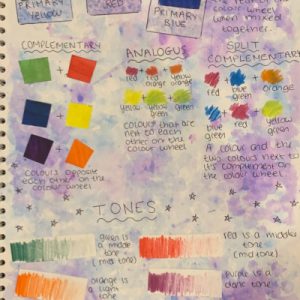 PRIMARY YELLOW
RED
PRIMARY BLUE
colour wheel
when mixed
together.
COMPLEMENTARY
ANALOGUS
SPLIT
COMPLEMENTARY
red
red orange
orange
red
blue green
orange
yellow
yellow green
green
blue
red
yellow green
Colours that are
next to each
other on the
colour wheel
Colours opposite
each other on the
colour wheel
A colour and the
two colours next to
it's complement on
the colour wheel.
TONES
green is
a middle
tone
(mid tone)
red is a middle
tone
(mid tone)
orange is
a light
tone
Purple is a
dark tone